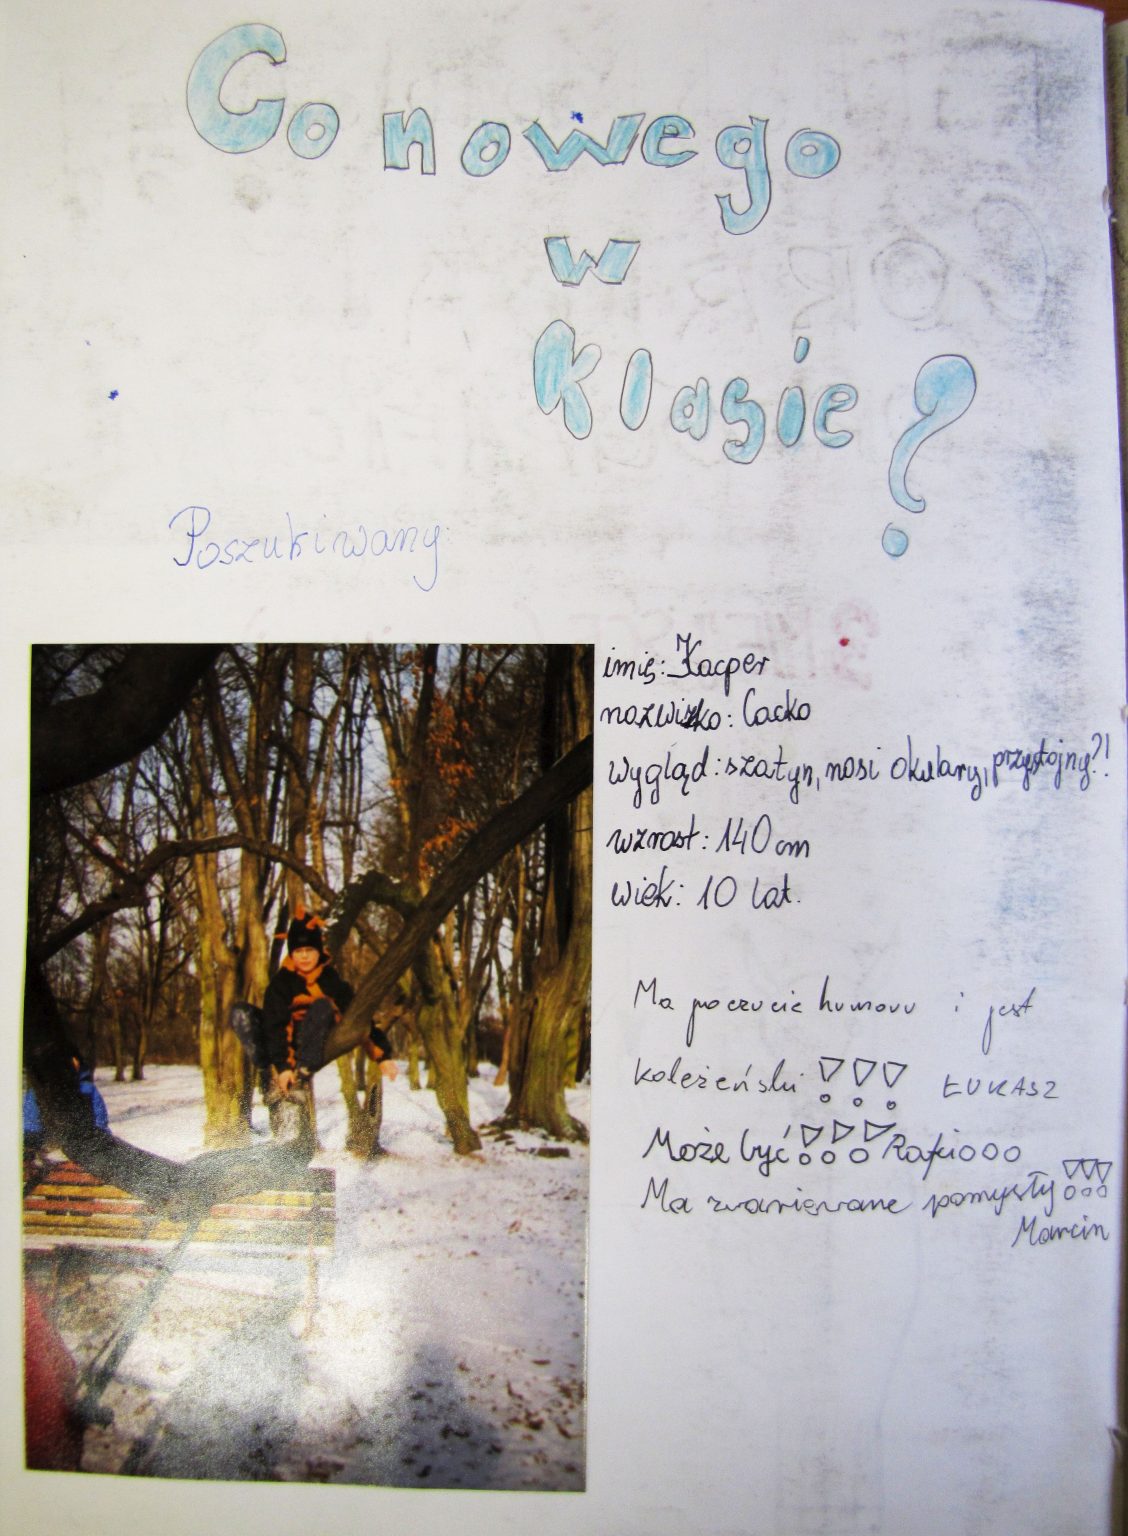 Co nowego
w
klasie?
Poszukiwany:
imię: Kacper
nazwizko: Cacko
wygląd: szatyn, nosi okulary, przystojny?!
wzrost: 140 cm
wiek: 10 lat.
Ma poczucie humoru i jest
koleżeński !!! ŁUKASZ
Może być !!! Rafcio
Ma zwariowane pomysły !!!
Marcin